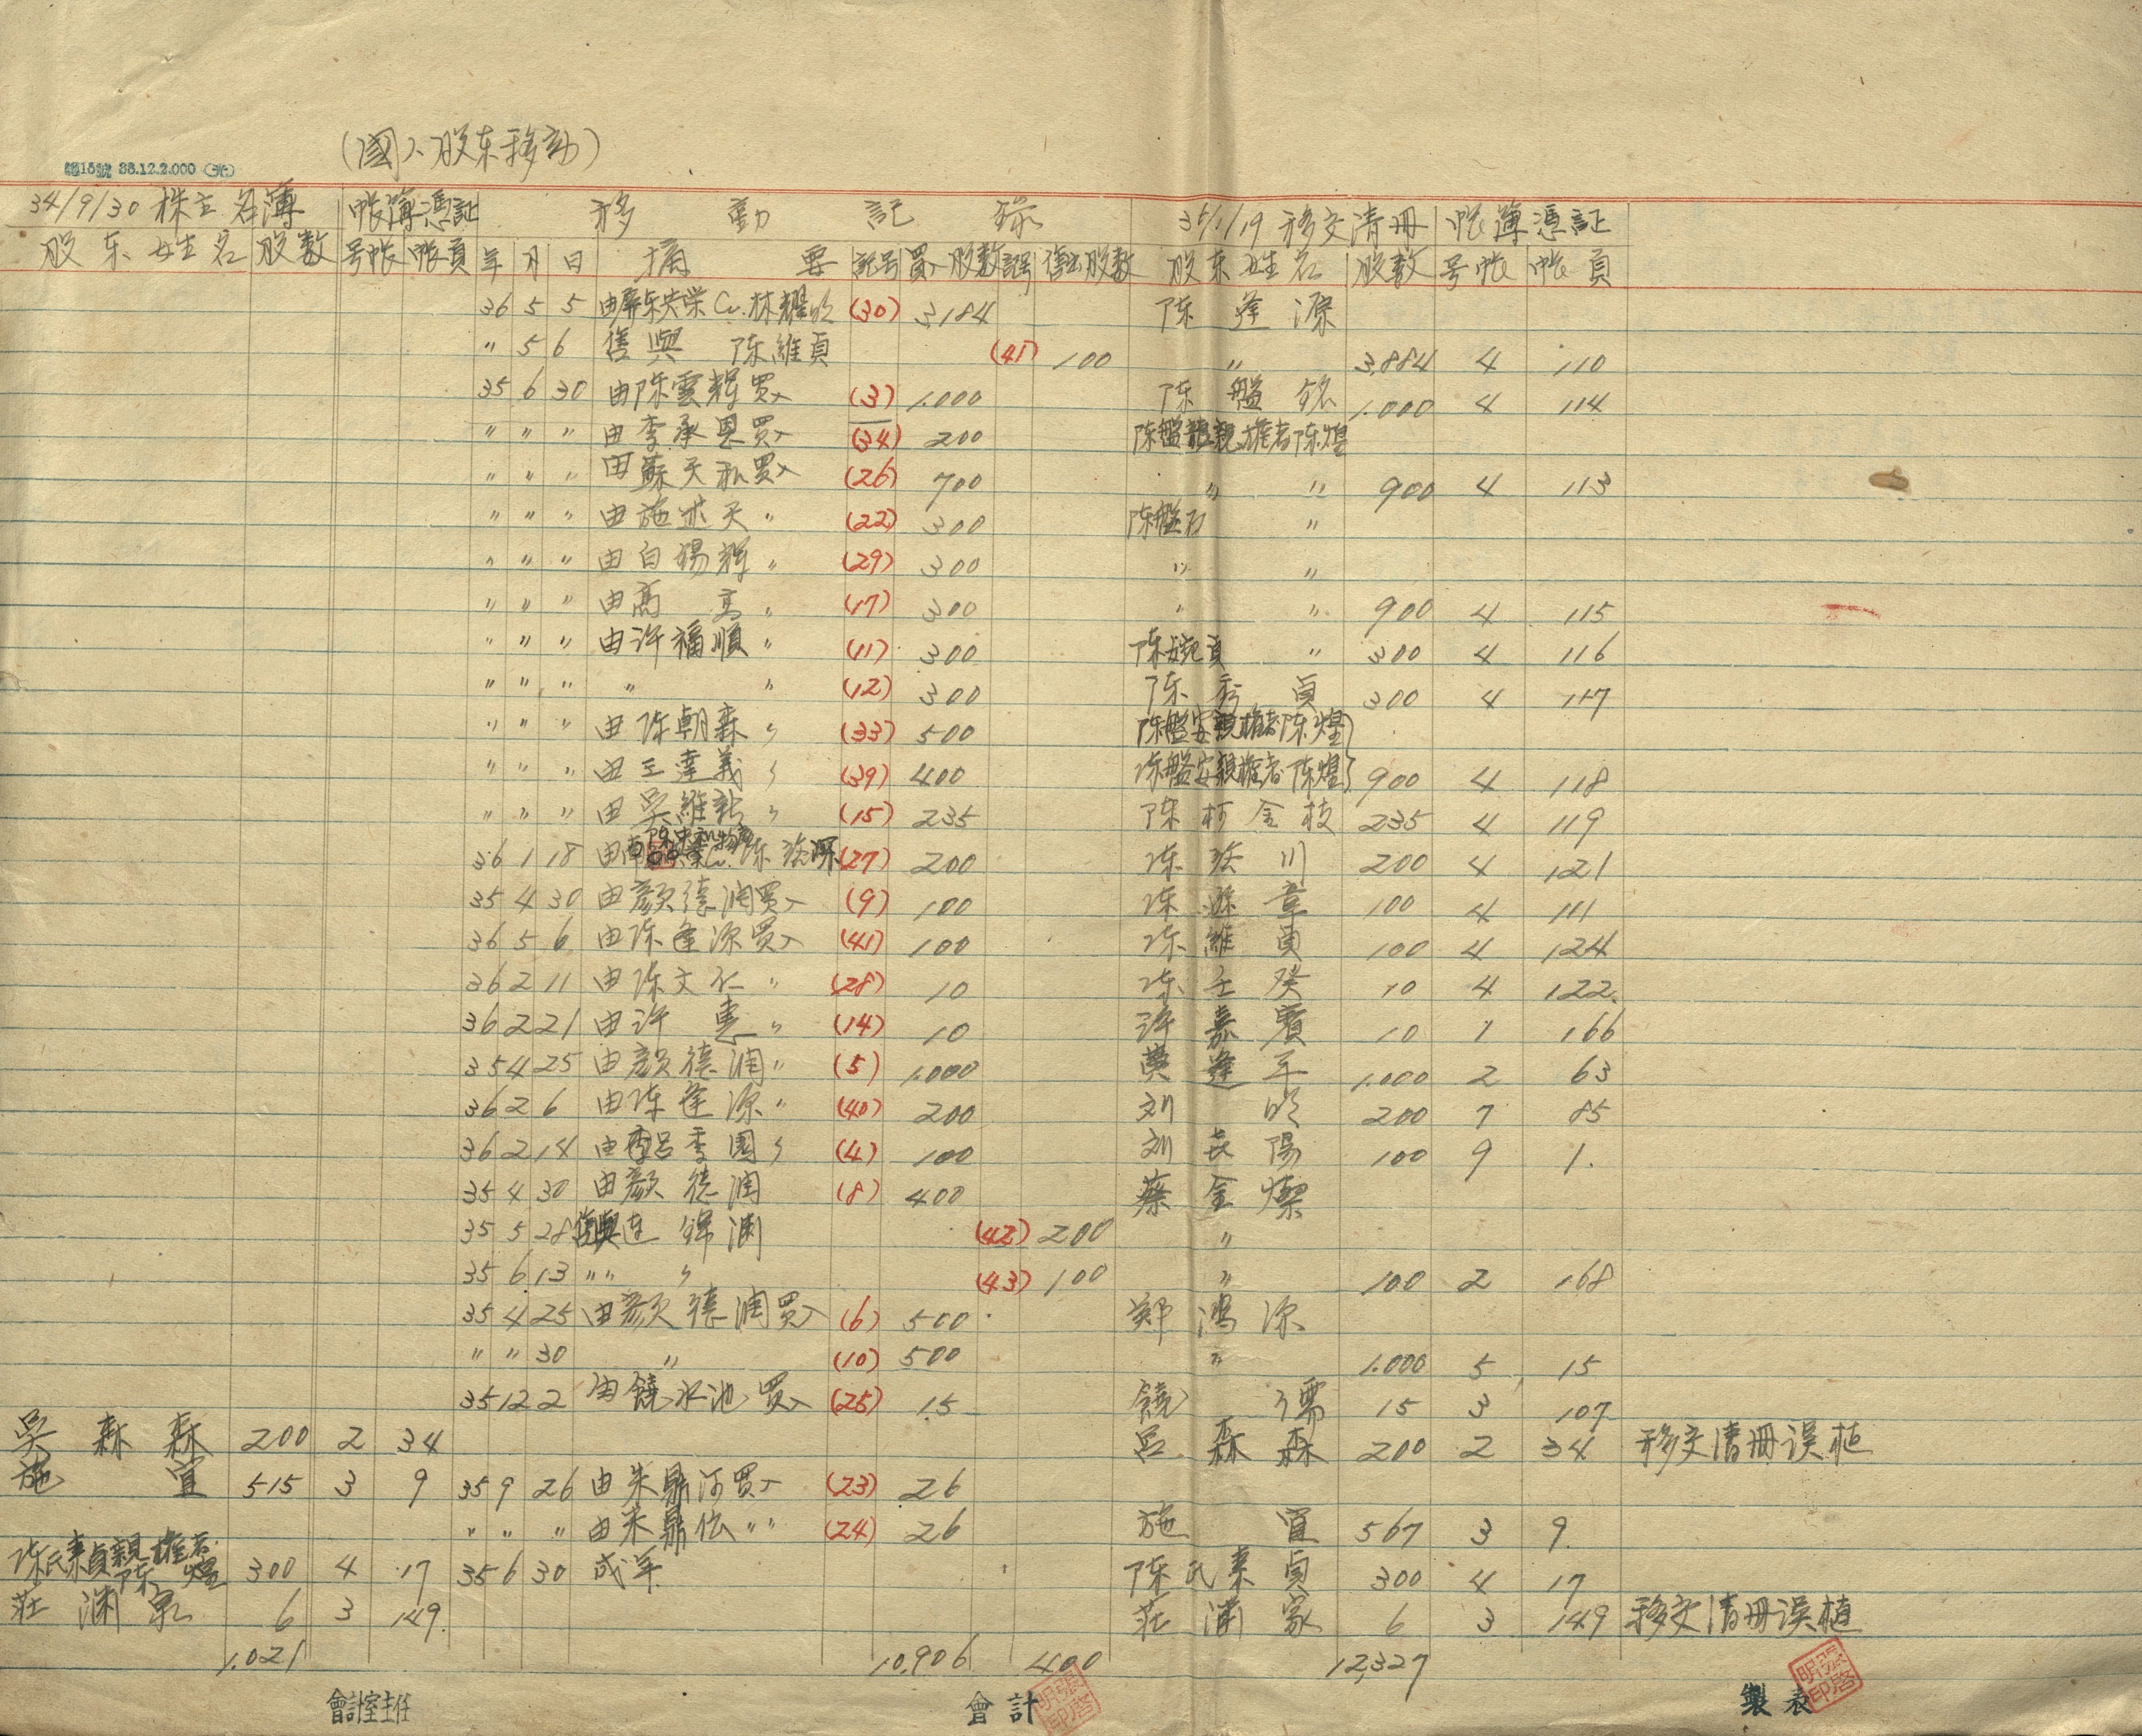 (國人股东移动)
35.12.2.000
34/9/30 株主名簿 帐簿憑証 移動記錄 35/1/19 移交清冊 帐簿憑証
股东姓名 股数 号帐 帐頁 年 月 日 摘要 記号 買入股数 記号 售出股数 股东姓名 股数 号帐 帐頁
36 5 5 (30) 3,184 陈逢源
〃 5 6 售與 陈維貞 (41) 100 〃 3,884 4 110
35 6 30 由陈雲輝買入 (3) 1.000 陈盤銘 1.000 4 114
〃 〃 〃 由李承恩買入 (34) 200 陈盤 親權者陈煌
〃 〃 〃 由蘇天 買入 (26) 700 〃 〃 900 4 113
〃 〃 〃 由施 天〃 (22) 300 陈盤石 〃
〃 〃 〃 由白錫輝〃 (29) 300 〃 〃
〃 〃 〃 由高 〃 (17) 300 〃 〃 900 4 115
〃 〃 〃 由许福順〃 (11) 300 陈婉貞 〃 300 4 116
〃 〃 〃 〃 〃 (12) 300 陈秀貞 300 4 117
〃 〃 〃 由陈朝森〃 (33) 500 陈盤安親權者陈煌
〃 〃 〃 由王達義〃 (39) 400 陈盤安親權者陈煌 900 4 118
〃 〃 〃 由吳維 〃 (15) 235 陈柯金枝 235 4 119
36 1 18 (27) 200 陈 川 200 4 121
35 4 30 由顏德潤買入 (9) 100 陈 章 100 4 111
36 5 6 由陈逢源買入 (41) 100 陈維貞 100 4 124
36 2 11 由陈文 〃 (28) 10 陈壬癸 10 4 122
36 2 21 由许 〃 (14) 10 许嘉賓 10 1 166
35 4 25 由顏德潤〃 (5) 1.000 黄逢平 1.000 2 63
36 2 6 由陈逢源〃 (40) 200 刘明 200 7 85
36 2 14 (4) 100 刘 陽 100 9 1.
35 4 30 由顏德潤 (8) 400 蔡金燦
35 5 28 售與連錦 (42) 200 〃
35 6 13 〃 〃 〃 (43) 100 〃 100 2 168
35 4 25 由顏德潤買入 (6) 500 鄭鴻源
〃 〃 30 〃 (10) 500 〃 1.000 5 15
35 12 2 由饒永池買入 (25) 15 饒 儒 15 3 107
吳森森 200 2 34 呂森森 200 2 34 移交清冊误植
施宜 515 3 9 35 9 26 由朱鼎 買入 (23) 26
〃 〃 〃 由朱鼎伝〃〃 (24) 26 施宜 567 3 9
陈氏素貞親權者陈煌 300 4 17 35 6 30 成年 陈氏素貞 300 4 17
莊 泉 6 3 149 莊 家 6 3 149 移交清冊误植
1.021 10,906 400 12,327
會計室主任 會計 製表
張啓明印 張啓明印